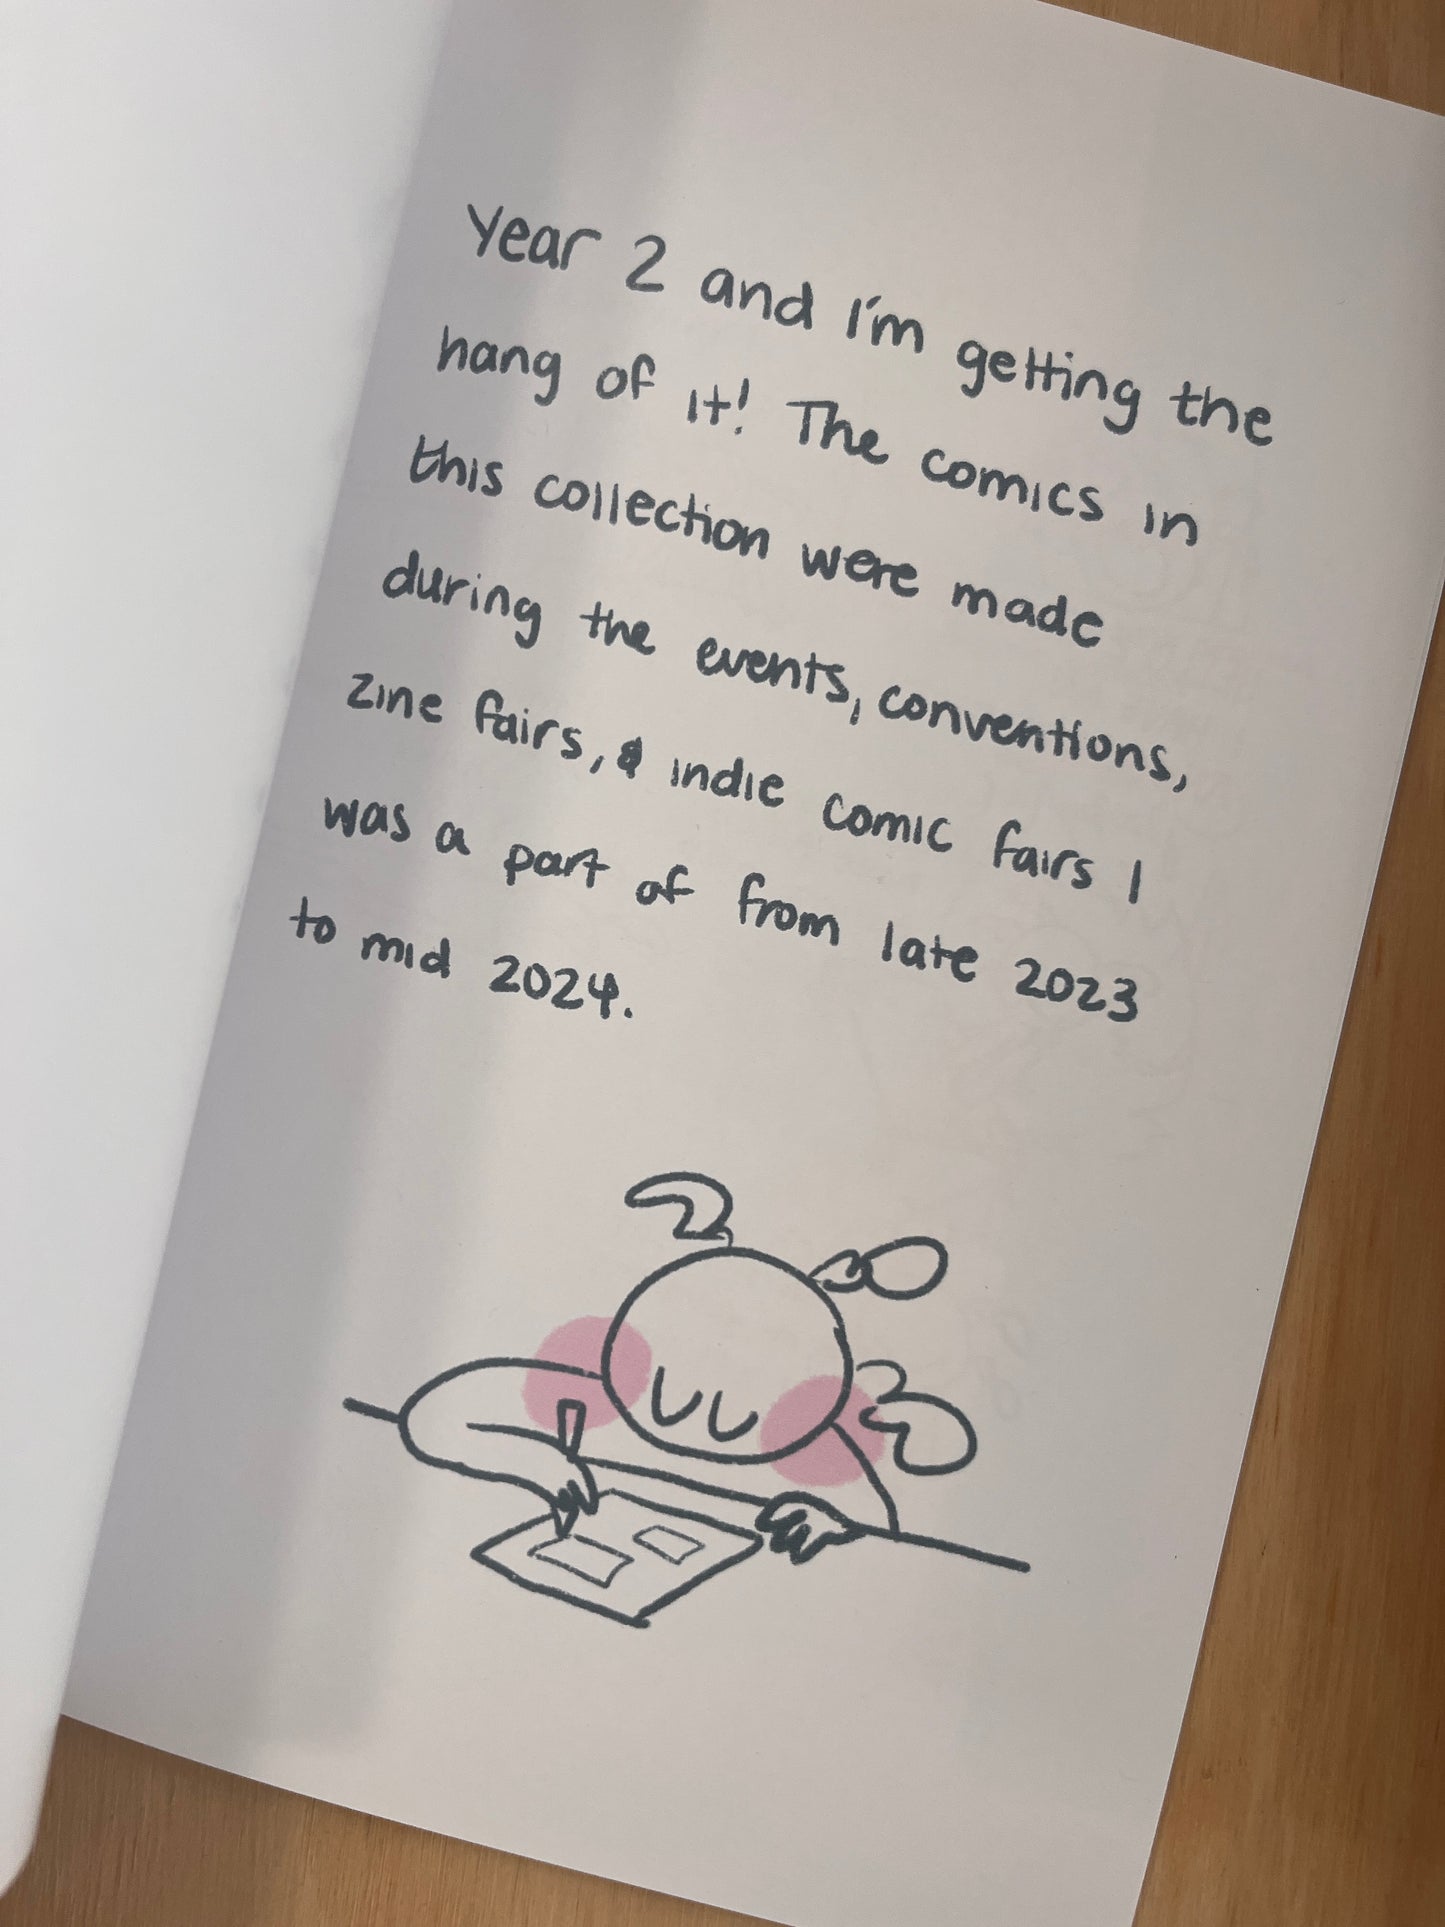 Year 2 and I'm getting the
hang of it! The comics in
this collection were made
during the events, conventions,
zine fairs, & indie comic fairs I
was a part of from late 2023
to mid 2024.